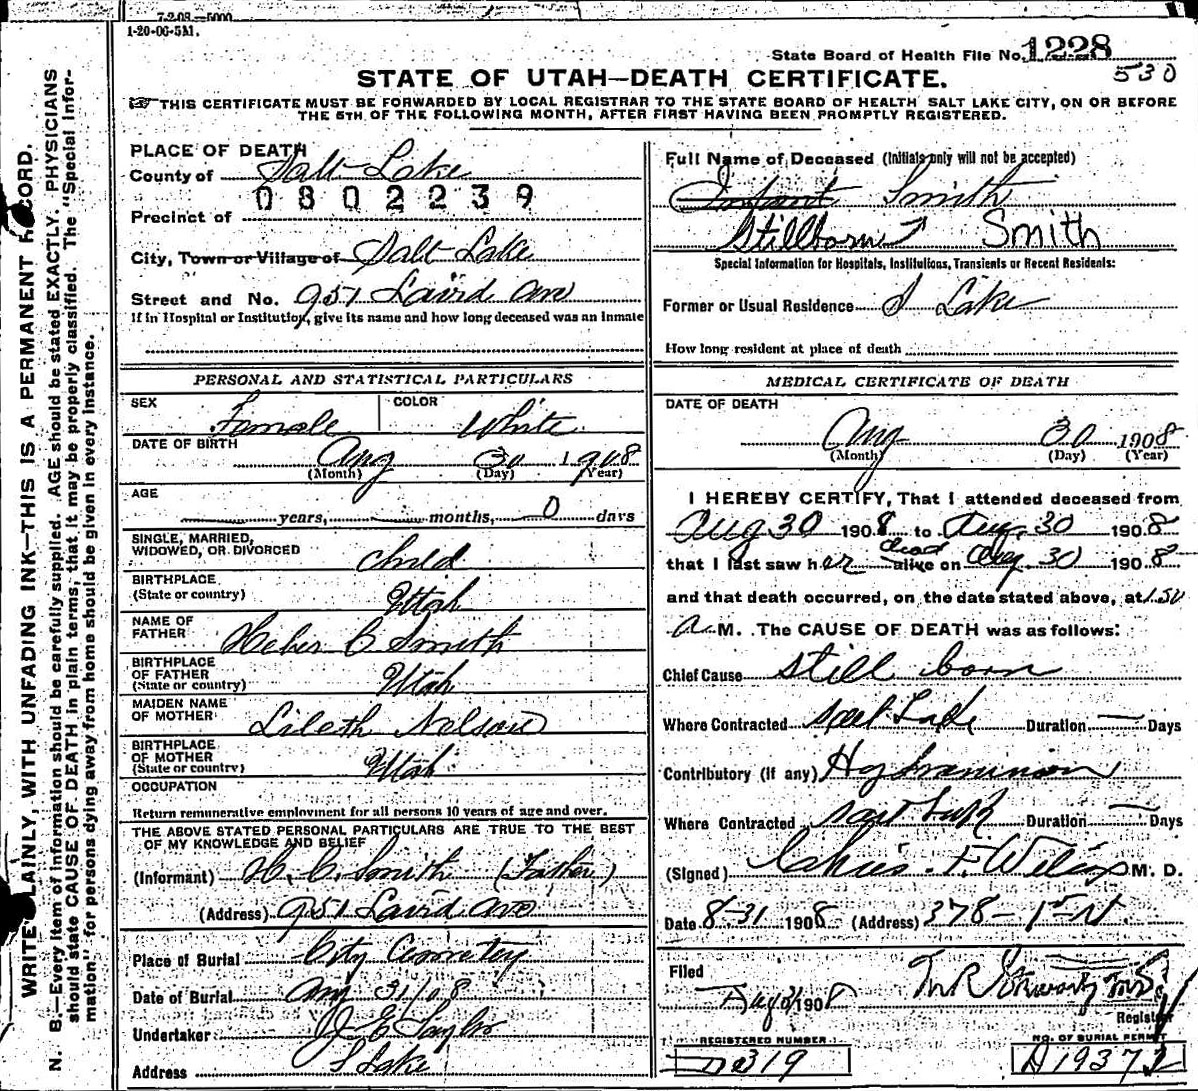 7-2-08.—5000
1-20-06-5M.
State Board of Health File No. 1228
530
STATE OF UTAH—DEATH CERTIFICATE.
☞ THIS CERTIFICATE MUST BE FORWARDED BY LOCAL REGISTRAR TO THE STATE BOARD OF HEALTH SALT LAKE CITY, ON OR BEFORE
THE 5TH OF THE FOLLOWING MONTH, AFTER FIRST HAVING BEEN PROMPTLY REGISTERED.
WRITE PLAINLY, WITH UNFADING INK—THIS IS A PERMANENT RECORD.
N. B.—Every item of information should be carefully supplied. AGE should be stated EXACTLY. PHYSICIANS
should state CAUSE OF DEATH in plain terms, that it may be properly classified. The "Special Infor-
mation" for persons dying away from home should be given in every instance.
PLACE OF DEATH
County of Salt Lake
0802239
Precinct of
City, Town or Village of Salt Lake
Street and No. 951 Laird Ave
If in Hospital or Institution, give its name and how long deceased was an inmate
PERSONAL AND STATISTICAL PARTICULARS
SEX Female COLOR White
DATE OF BIRTH
Aug 30 1908
(Month) (Day) (Year)
AGE
years, months, 0 days
SINGLE, MARRIED,
WIDOWED, OR DIVORCED child
BIRTHPLACE
(State or country) Utah
NAME OF
FATHER Heber C Smith
BIRTHPLACE
OF FATHER
(State or country) Utah
MAIDEN NAME
OF MOTHER Lileth Nelson
BIRTHPLACE
OF MOTHER
(State or country) Utah
OCCUPATION
Return remunerative employment for all persons 10 years of age and over.
THE ABOVE STATED PERSONAL PARTICULARS ARE TRUE TO THE BEST
OF MY KNOWLEDGE AND BELIEF
(Informant) H. C. Smith (Father)
(Address) 951 Laird Ave
Place of Burial City Cemetery
Date of Burial Aug 31/08
Undertaker J E Taylor
Address S Lake
Full Name of Deceased (Initials only will not be accepted)
Infant Smith
Stillborn Smith
Special Information for Hospitals, Institutions, Transients or Recent Residents:
Former or Usual Residence S Lake
How long resident at place of death
MEDICAL CERTIFICATE OF DEATH
DATE OF DEATH
Aug 30 1908
(Month) (Day) (Year)
I HEREBY CERTIFY, That I attended deceased from
Aug 30 1908 to Aug. 30 1908
dead
that I last saw her alive on Aug. 30 1908
and that death occurred, on the date stated above, at 1.50
A M. The CAUSE OF DEATH was as follows:
Chief Cause still born
Where Contracted Salt Lake Duration — Days
Contributory (If any)
Where Contracted Salt Lake Duration — Days
(Signed) Chas. F. M. D.
Date 8-31 1908 (Address) 378 – 1st N
Filed
Aug 31 1908 T. B.
Registrar
REGISTERED NUMBER
319
NO. OF BURIAL PERMIT
A 1937